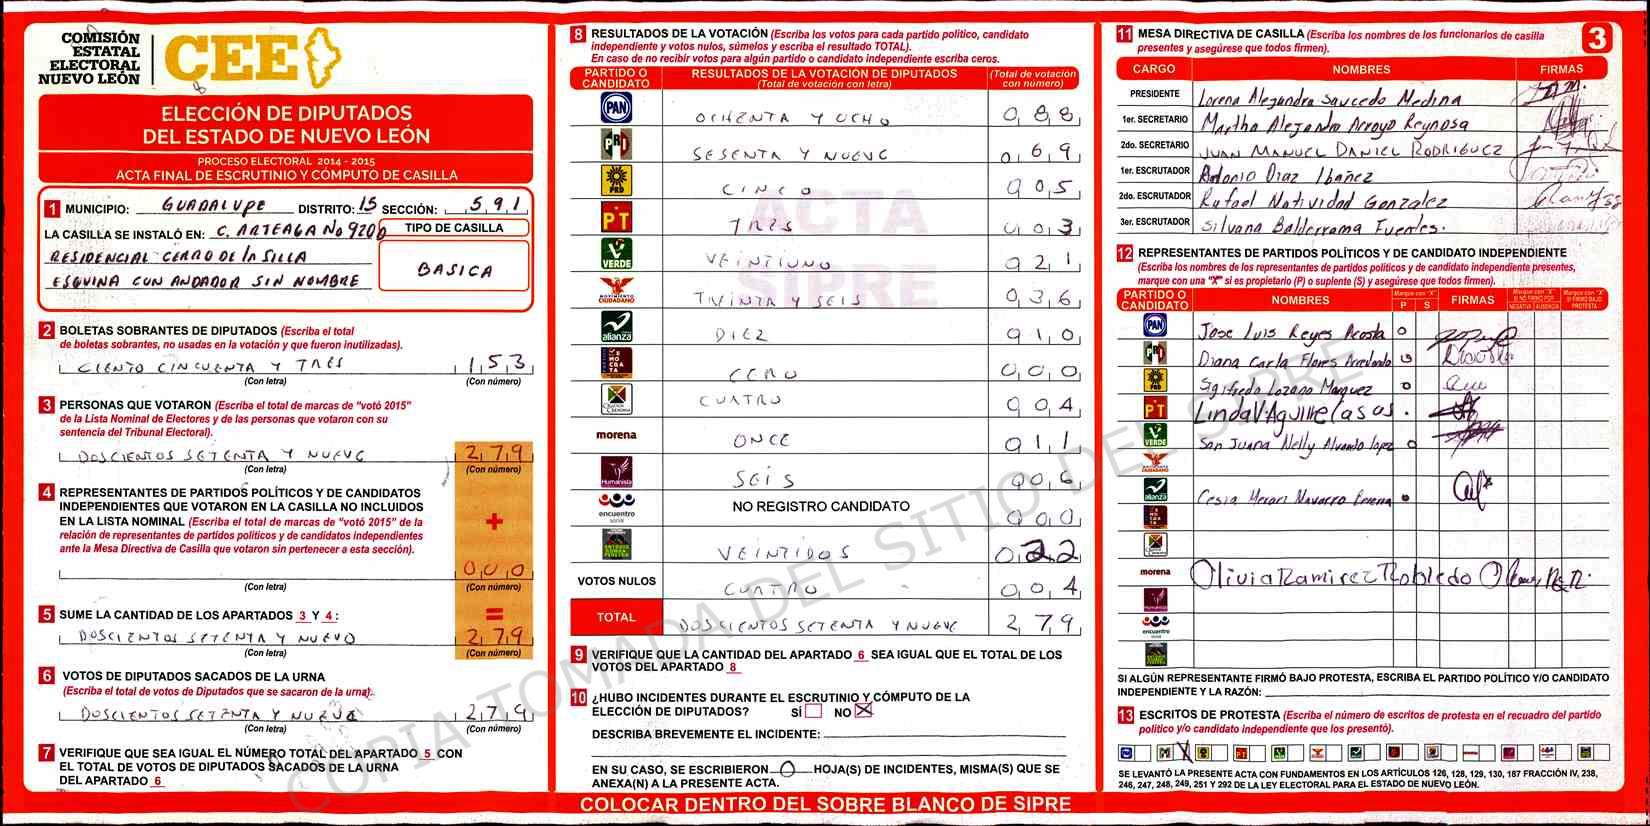 COMISIÓN
ESTATAL
ELECTORAL
NUEVO LEÓN
CEE
ELECCIÓN DE DIPUTADOS
DEL ESTADO DE NUEVO LEÓN
PROCESO ELECTORAL 2014 - 2015
ACTA FINAL DE ESCRUTINIO Y CÓMPUTO DE CASILLA
1 MUNICIPIO: GUADALUPE DISTRITO: 15 SECCIÓN: 591
LA CASILLA SE INSTALÓ EN: C. ARTEAGA No 9200
RESIDENCIAL CERRO DE la SILLA
ESQUINA CON ANDADOR SIN NOMBRE
TIPO DE CASILLA
BASICA
2 BOLETAS SOBRANTES DE DIPUTADOS (Escriba el total
de boletas sobrantes, no usadas en la votación y que fueron inutilizadas).
CIENTO CINCUENTA Y TRES 153
(Con letra) (Con número)
3 PERSONAS QUE VOTARON (Escriba el total de marcas de "votó 2015"
de la Lista Nominal de Electores y de las personas que votaron con su
sentencia del Tribunal Electoral).
DOSCIENTOS SETENTA Y NUEVE 279
(Con letra) (Con número)
4 REPRESENTANTES DE PARTIDOS POLÍTICOS Y DE CANDIDATOS
INDEPENDIENTES QUE VOTARON EN LA CASILLA NO INCLUIDOS
EN LA LISTA NOMINAL (Escriba el total de marcas de "votó 2015" de la
relación de representantes de partidos políticos y de candidatos independientes
ante la Mesa Directiva de Casilla que votaron sin pertenecer a esta sección).
+
000
(Con letra) (Con número)
5 SUME LA CANTIDAD DE LOS APARTADOS 3 Y 4: =
DOSCIENTOS SETENTA Y NUEVO 279
(Con letra) (Con número)
6 VOTOS DE DIPUTADOS SACADOS DE LA URNA
(Escriba el total de votos de Diputados que se sacaron de la urna).
DOSCIENTOS SETENTA Y NUEVE 279
(Con letra) (Con número)
7 VERIFIQUE QUE SEA IGUAL EL NÚMERO TOTAL DEL APARTADO 5 CON
EL TOTAL DE VOTOS DE DIPUTADOS SACADOS DE LA URNA
DEL APARTADO 6
8 RESULTADOS DE LA VOTACIÓN (Escriba los votos para cada partido político, candidato
independiente y votos nulos, súmelos y escriba el resultado TOTAL).
En caso de no recibir votos para algún partido o candidato independiente escriba ceros.
PARTIDO O CANDIDATO RESULTADOS DE LA VOTACIÓN DE DIPUTADOS (Total de votación con letra) (Total de votación con número)
PAN OCHENTA Y OCHO 088
PRI SESENTA Y NUEVE 069
PRD CINCO 005
PT TRES 003
VERDE VEINTIUNO 021
MOVIMIENTO CIUDADANO TREINTA Y SEIS 036
alianza DIEZ 010
DEMÓCRATA CERO 000
CUATRO 004
morena ONCE 011
Humanista SEIS 006
encuentro social NO REGISTRO CANDIDATO 000
VEINTIDOS 022
VOTOS NULOS CUATRO 004
TOTAL DOSCIENTOS SETENTA Y NUEVE 279
ACTA
SIPRE
9 VERIFIQUE QUE LA CANTIDAD DEL APARTADO 6 SEA IGUAL QUE EL TOTAL DE LOS
VOTOS DEL APARTADO 8
10 ¿HUBO INCIDENTES DURANTE EL ESCRUTINIO Y CÓMPUTO DE LA
ELECCIÓN DE DIPUTADOS? SÍ NO X
DESCRIBA BREVEMENTE EL INCIDENTE:
EN SU CASO, SE ESCRIBIERON 0 HOJA(S) DE INCIDENTES, MISMA(S) QUE SE
ANEXA(N) A LA PRESENTE ACTA.
COLOCAR DENTRO DEL SOBRE BLANCO DE SIPRE
11 MESA DIRECTIVA DE CASILLA (Escriba los nombres de los funcionarios de casilla
presentes y asegúrese que todos firmen).
3
CARGO NOMBRES FIRMAS
PRESIDENTE Lorena Alejandra Saucedo Medina
1er. SECRETARIO Martha Alejandra Arroyo Reynosa
2do. SECRETARIO JUAN MANUEL DANIEL RODRIGUEZ
1er. ESCRUTADOR Antonio Diaz Ibañez
2do. ESCRUTADOR Rafael Natividad Gonzalez
3er. ESCRUTADOR Silvana Balderrama Fuentes.
12 REPRESENTANTES DE PARTIDOS POLÍTICOS Y DE CANDIDATO INDEPENDIENTE
(Escriba los nombres de los representantes de partidos políticos y de candidato independiente presentes,
marque con una "X" si es propietario (P) o suplente (S) y asegúrese que todos firmen).
PARTIDO O CANDIDATO NOMBRES Marque con "X" P S FIRMAS Marque con "X" SI NO FIRMÓ POR NEGATIVA AUSENCIA Marque con "X" SI FIRMÓ BAJO PROTESTA
PAN Jose Luis Reyes Acosta
PRI Diana Carla Flores Arredondo
PRD Sigifredo Lozano Marquez
PT Linda V Aguille Casas
VERDE San Juana Nelly Alvarado lopez
MOVIMIENTO CIUDADANO
alianza Cesia Merari Navarro
morena Olivia Ramirez Robledo
Humanista
encuentro social
SI ALGÚN REPRESENTANTE FIRMÓ BAJO PROTESTA, ESCRIBA EL PARTIDO POLÍTICO Y/O CANDIDATO
INDEPENDIENTE Y LA RAZÓN:
13 ESCRITOS DE PROTESTA (Escriba el número de escritos de protesta en el recuadro del partido
político y/o candidato independiente que los presentó).
SE LEVANTÓ LA PRESENTE ACTA CON FUNDAMENTOS EN LOS ARTÍCULOS 126, 128, 129, 130, 187 FRACCIÓN IV, 238,
246, 247, 248, 249, 251 Y 292 DE LA LEY ELECTORAL PARA EL ESTADO DE NUEVO LEÓN.
COPIA TOMADA DEL SITIO DEL SIPRE